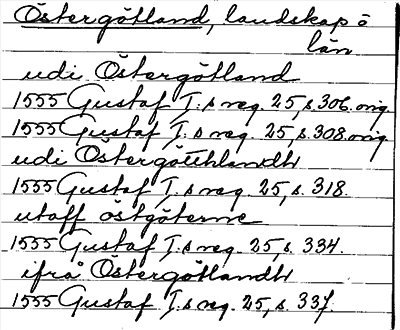 Östergötland, landskap o
län
udi Östergötland
1555 Gustaf I:s reg. 25, s. 306. orig.
1555 Gustaf I:s reg. 25, s. 308. orig.
udi Östergötthlandtt
1555 Gustaf I:s reg. 25, s. 318.
utaff östgöterne
1555 Gustaf I:s reg. 25, s. 334.
ifrå Östergötlandtt
1555 Gustaf I:s reg. 25, s. 337.